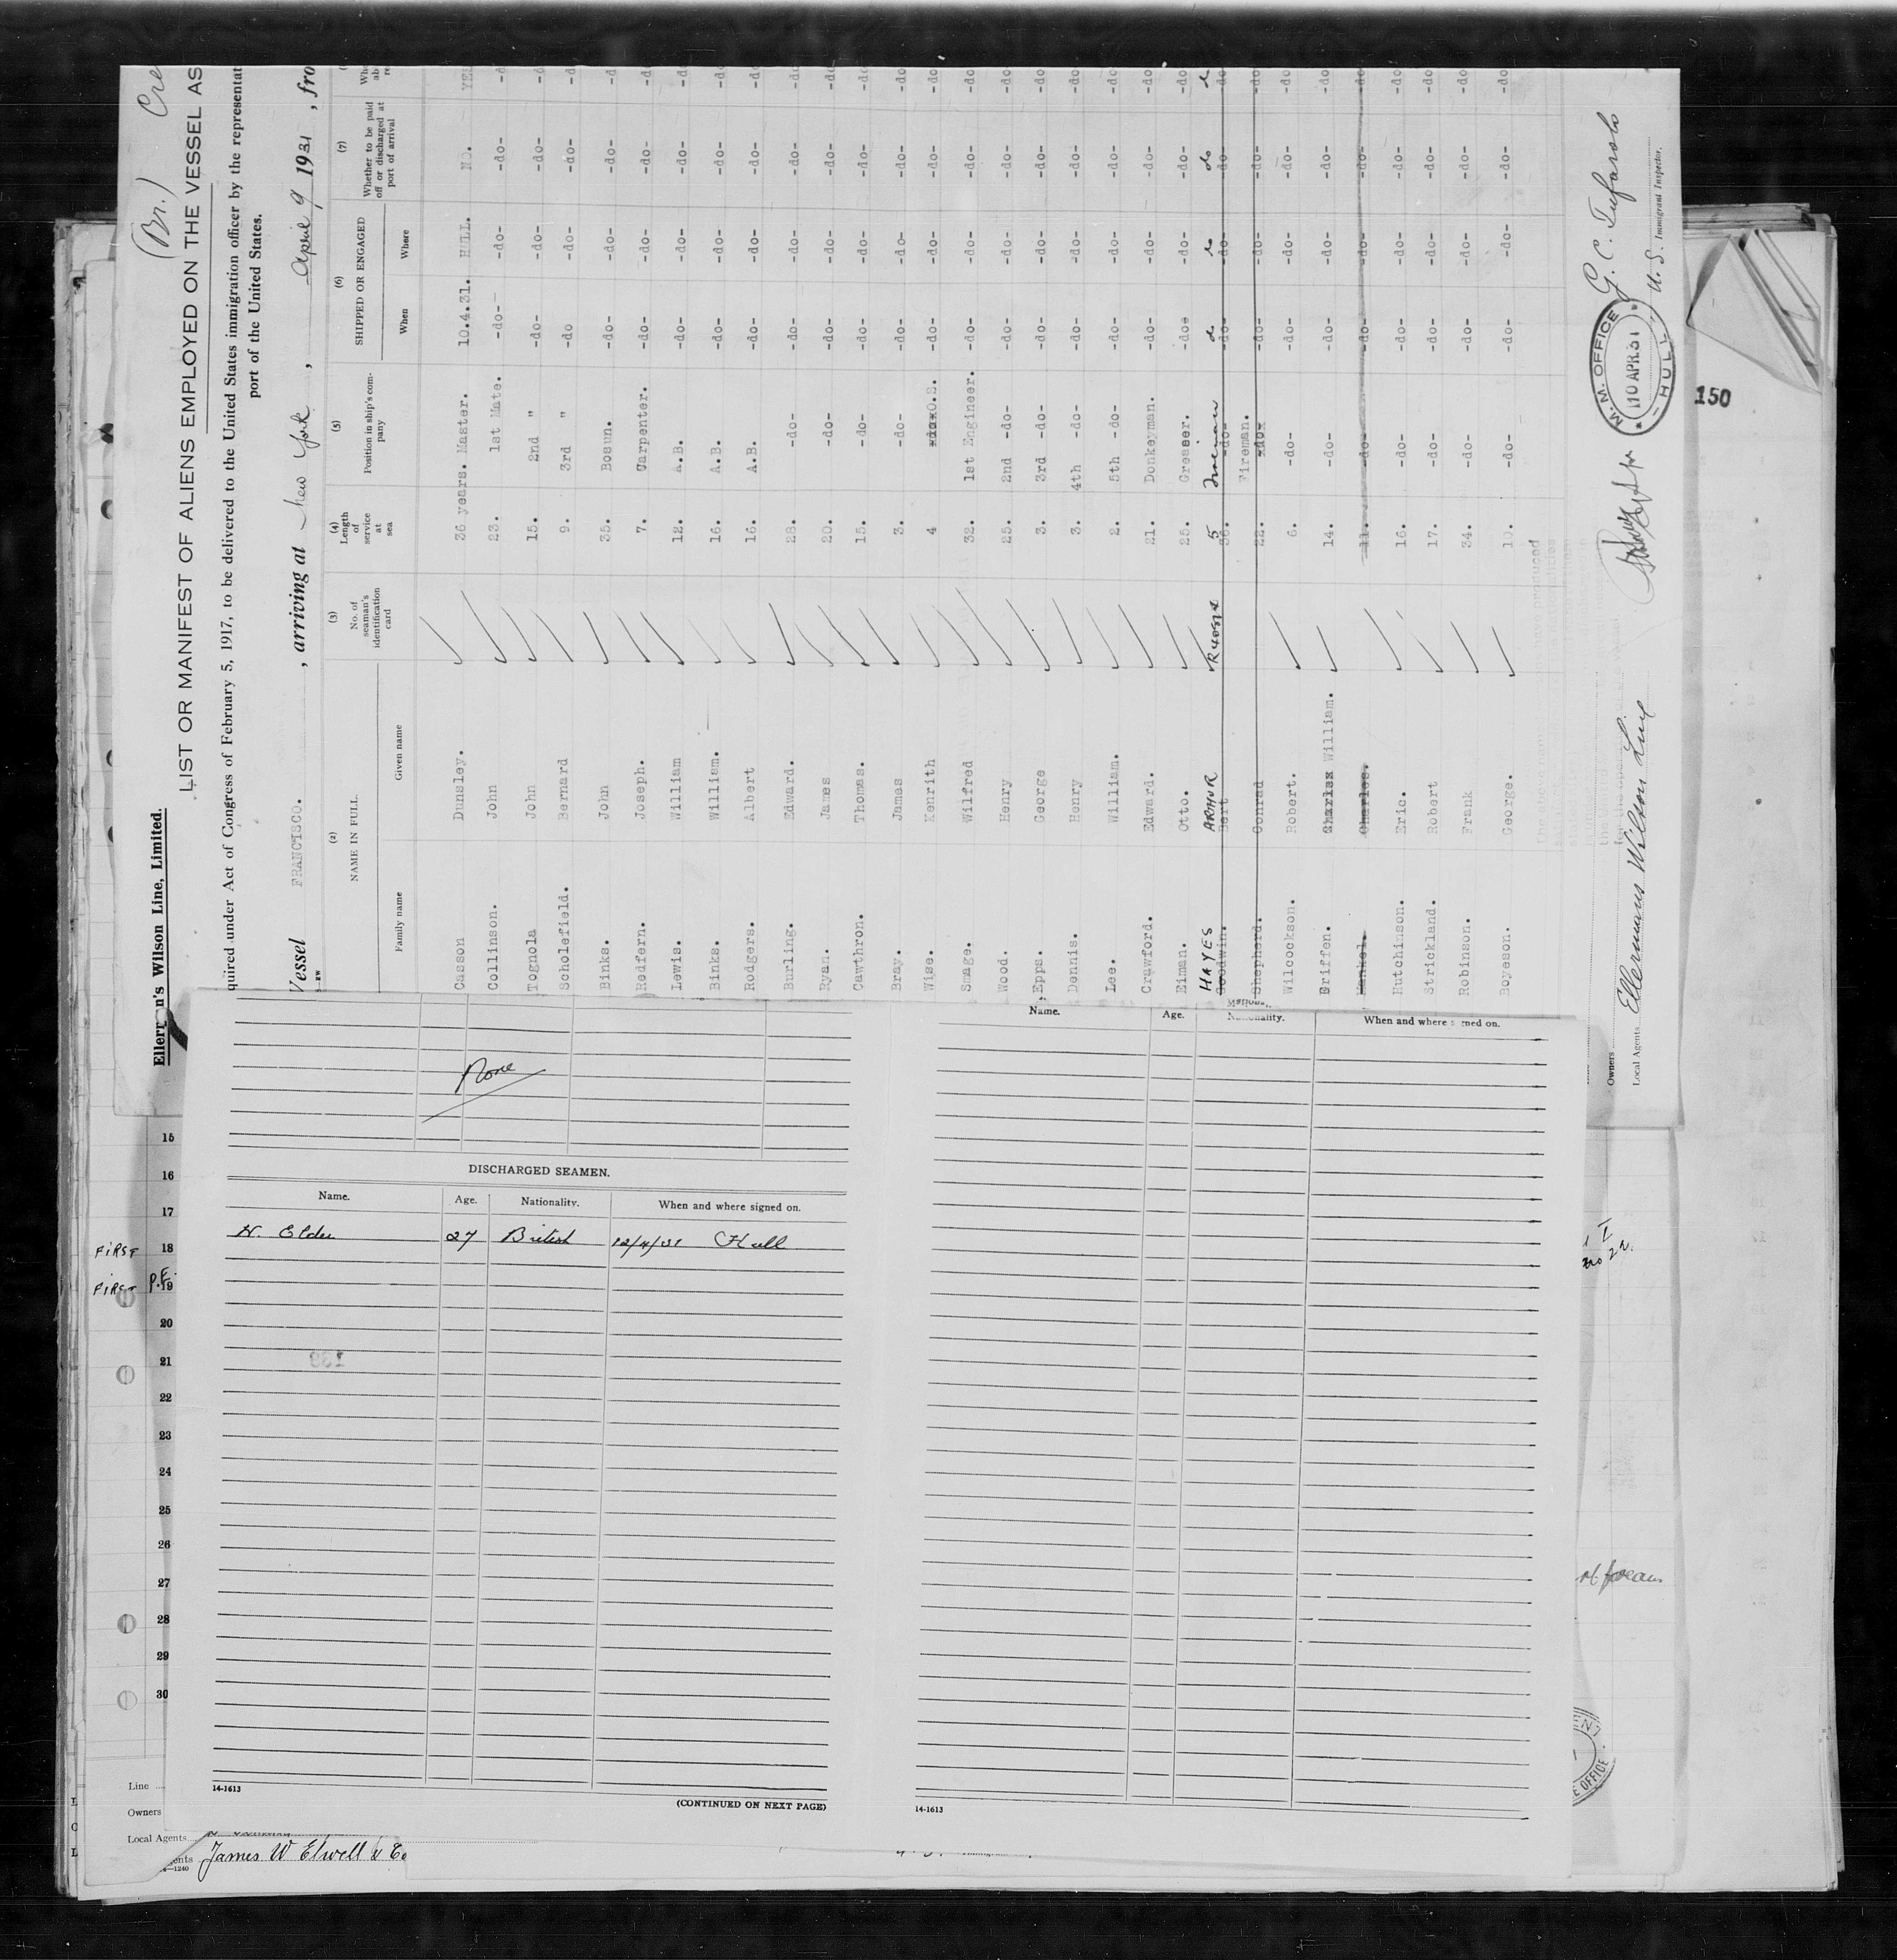 (Br.)
Ellerman's Wilson Line, Limited.
LIST OR MANIFEST OF ALIENS EMPLOYED ON THE VESSEL AS
quired under Act of Congress of February 5, 1917, to be delivered to the United States immigration officer by the representat
port of the United States.
Vessel FRANCISCO. , arriving at New York , April 9 1931 , fro
(2) (3) (4) (5) (6) (7)
NAME IN FULL No. of seaman's identification card Length of service at sea Position in ship's company SHIPPED OR ENGAGED Whether to be paid off or discharged at port of arrival
Family name Given name When Where
Casson Dunsley. 36 years. Master. 10.4.31. HULL. NO. YES
Collinson. John 23. 1st Mate. -do- -do- -do- -d
Tognola John 15. 2nd " -do- -do- -do- -d
Scholefield. Bernard 9. 3rd " -do -do- -do- -d
Binks. John 35. Bosun. -do- -do- -do- -d
Redfern. Joseph. 7. Carpenter. -do- -do- -do- -d
Lewis. William 12. A.B. -do- -do- -do- -d
Binks. William. 16. A.B. -do- -do- -do- -do
Rodgers. Albert 16. A.B. -do- -do- -do- -do
Burling. Edward. 28. -do- -do- -do- -do- -do
Ryan. James 20. -do- -do- -do- -do- -do
Cawthron. Thomas. 15. -do- -do- -do- -do- -do
Bray. James 3. -do- -do- -do- -do- -do
Wise. Kenrith 4 O.S. -do- -do- -do- -do
Smage. Wilfred 32. 1st Engineer. -do- -do- -do- -do
Wood. Henry 25. 2nd -do- -do- -do- -do- -do
Epps. George 3. 3rd -do- -do- -do- -do- -do
Dennis. Henry 3. 4th -do- -do- -do- -do- -do
Lee. William. 2. 5th -do- -do- -do- -do- -do
Crawford. Edward. 21. Donkeyman. -do- -do- -do- -do
Eiman. Otto. 25. Greaser. -do- -do- -do- -do
HAYES ARTHUR 5 Fireman do do do do
Goodwin. Bert 36. -do- -do- -do- -do- -do
Fireman.
Shepherd. Conrad 22. -do- -do- -do- -do- -do
Wilcockson. Robert. 6. -do- -do- -do- -do- -do
Griffen. Charles William. 14. -do- -do- -do- -do- -do
Hankel. Charles. 11. -do- -do- -do- -do- -do
Hutchinson. Eric. 16. -do- -do- -do- -do- -do
Strickland. Robert 17. -do- -do- -do- -do- -do
Robinson. Frank 34. -do- -do- -do- -do- -do
Boyeson. George. 10. -do- -do- -do- -do- -do
Owners
Local Agents Ellermans Wilson Line
M.M. OFFICE
10 APR 31
HULL
U. S. Immigrant Inspector.
150
None
DISCHARGED SEAMEN.
Name. Age. Nationality. When and where signed on.
H. Elder 27 British 12/4/31 Hull
14-1613
(CONTINUED ON NEXT PAGE)
Name. Age. Nationality. When and where signed on.
14-1613
15
16
17
FIRST 18
FIRST P.F. 19
20
21
22
23
24
25
26
27
28
29
30
Line
Owners
Local Agents
James W Elwell & Co
E OFFICE